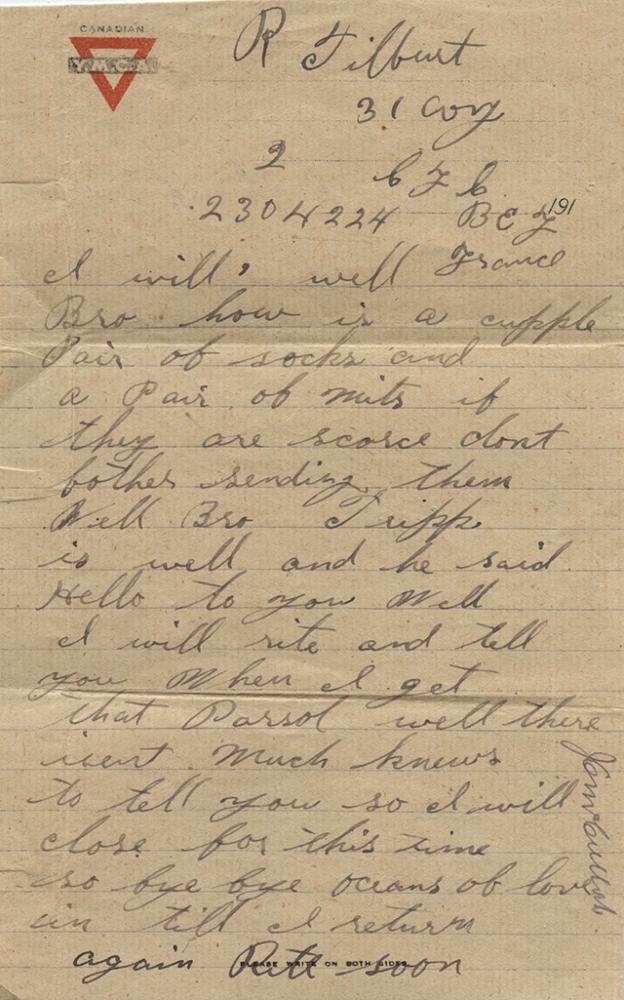 CANADIAN
Y.M.C.A.
R Gilbert
31 Coy
2
C F C
2304224 B E F 191
France
I will, well
Bro how is a cupple
Pair of socks and
a Pair of mits if
they are scorce dont
bother sending them
Well Bro Tripp
is well and he said
Hello to you Well
I will rite and tell
you When I get
that Parsol well there
isent Much knews
to tell you so I will
close for this time
so bye bye oceans of love
un till I return
again Rite soon
PLEASE WRITE ON BOTH SIDES